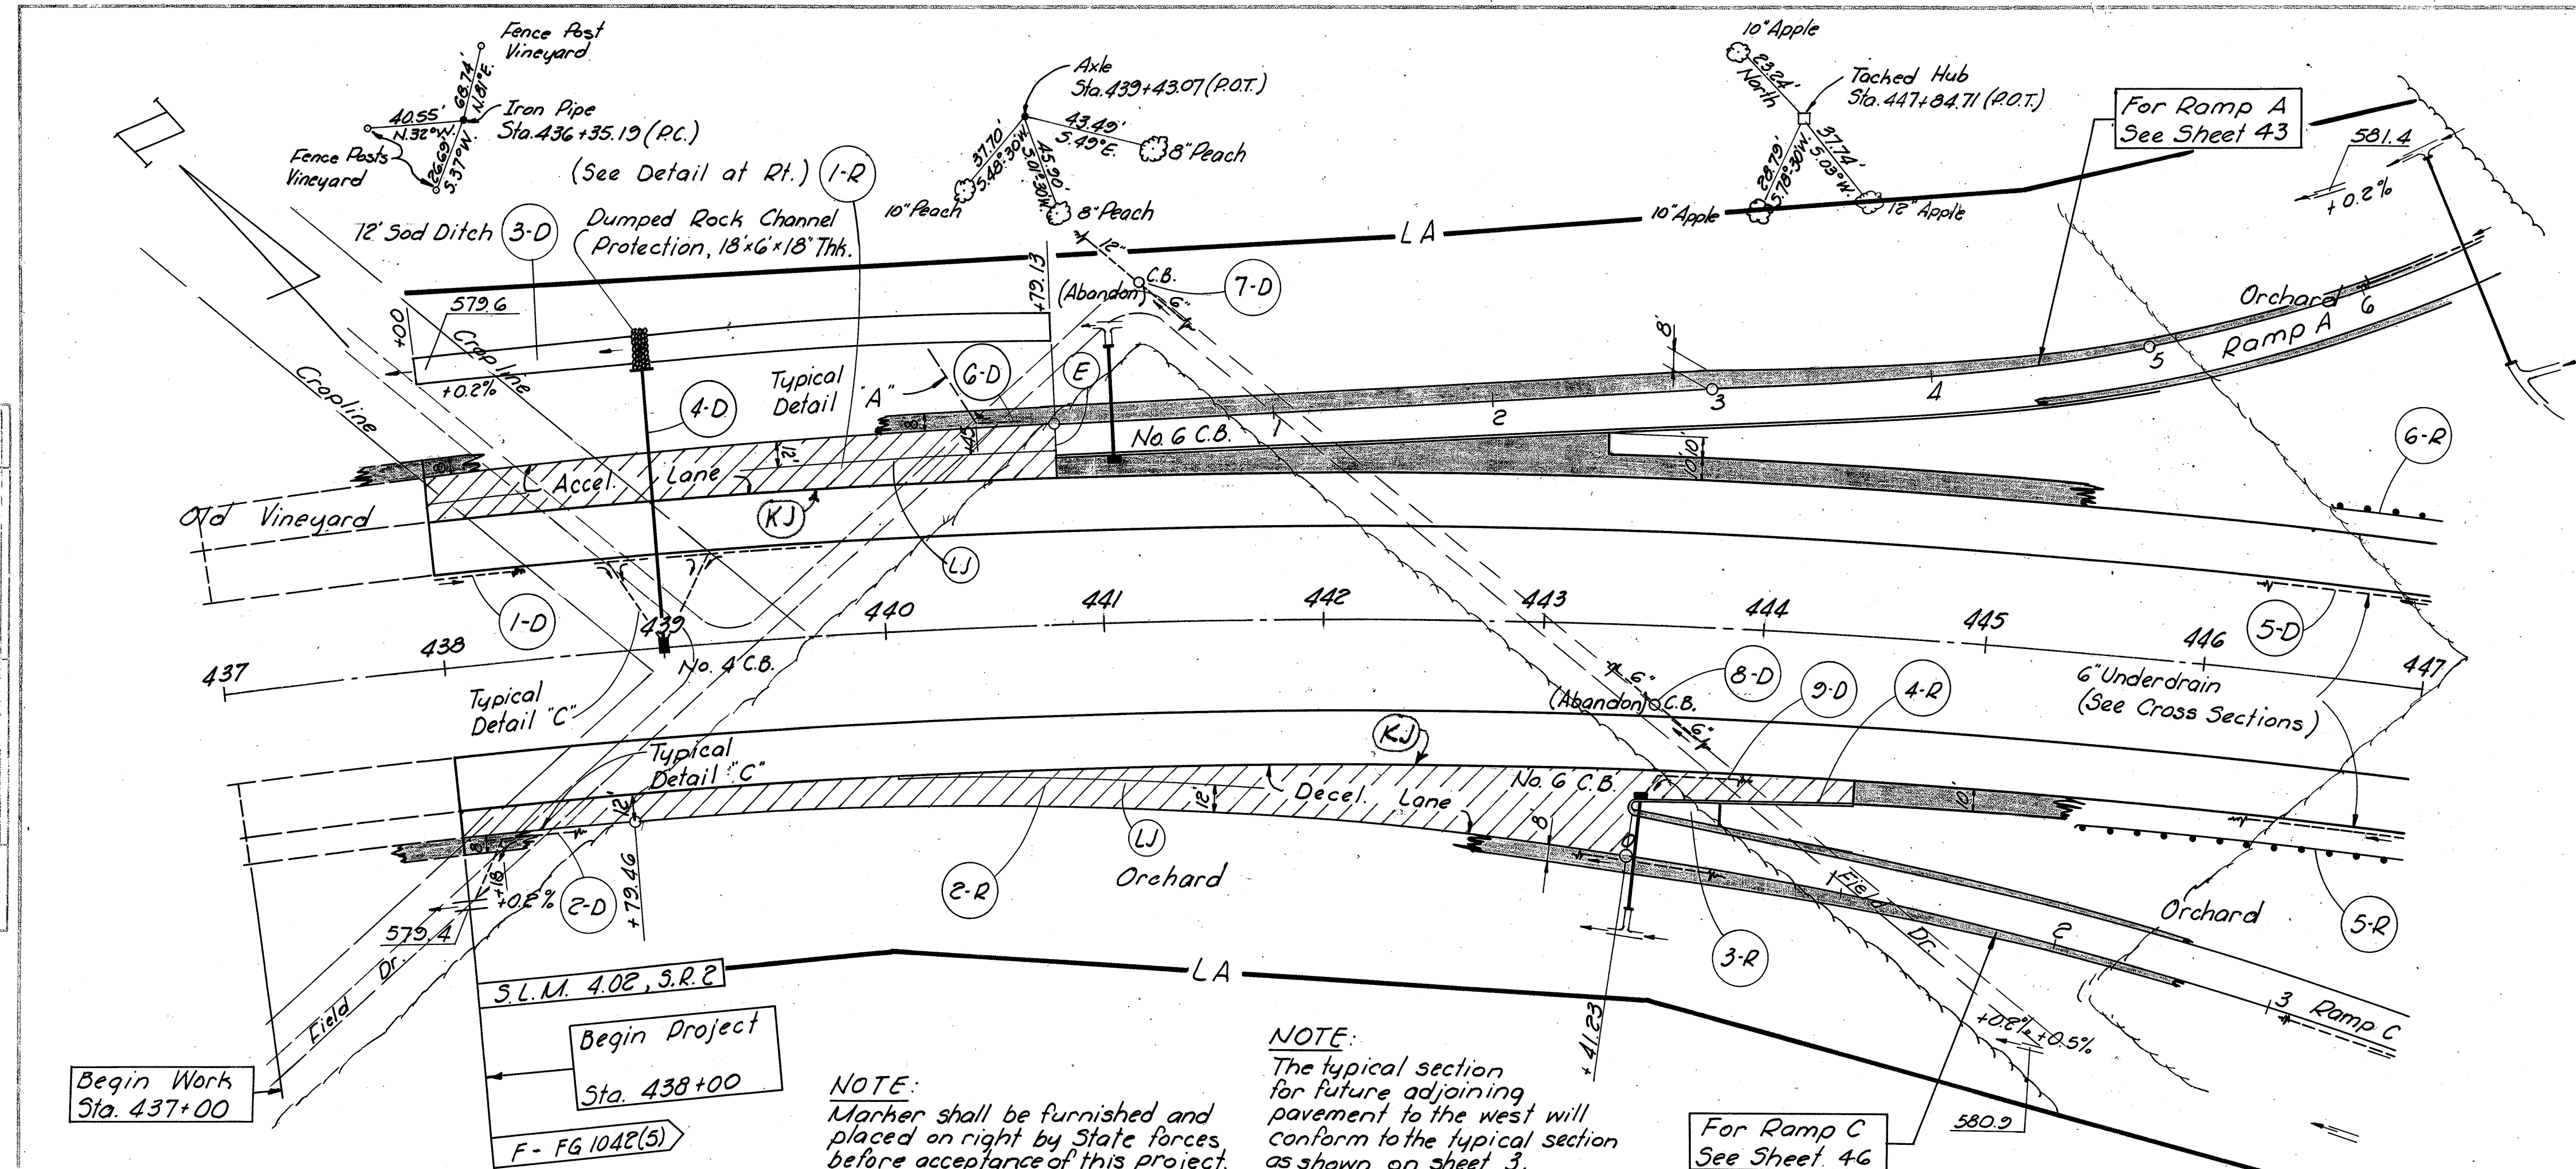 Fence Post
Vineyard
68.74'
N.81°E.
40.55'
N.32°W.
Iron Pipe
Sta.436+35.19 (P.C.)
Fence Posts
Vineyard
26.69'
S.37°W.
(See Detail at Rt.)
1-R
Axle
Sta.439+43.07 (P.O.T.)
43.49'
S.49°E.
8" Peach
37.70'
S.48°30'W.
10" Peach
45.90'
S.01°30'W.
8" Peach
10" Apple
23.24'
North
Tacked Hub
Sta.447+84.71 (P.O.T.)
28.79'
S.78°30'W.
37.74'
S.03°W.
10" Apple
12" Apple
For Ramp A
See Sheet 43
581.4
+0.2%
72' Sod Ditch
3-D
Dumped Rock Channel
Protection, 18'x6'x18" Thk.
LA
+79.13
12"
C.B.
(Abandon)
6"
7-D
+00
579.6
+0.2%
Cropline
Cropline
4-D
Typical
Detail "A"
6-D
E
8'
Orchard
6
Ramp A
5
4
3
2
1
8'
+45
No. 6 C.B.
10'
10'
6-R
8'
Accel. Lane
12'
KJ
LJ
Old Vineyard
1-D
437
438
439
440
441
442
443
444
445
446
447
No. 4 C.B.
Typical
Detail "C"
5-D
6" Underdrain
(See Cross Sections)
6"
8-D
(Abandon)
C.B.
6"
9-D
4-R
KJ
Typical
Detail "C"
12'
Decel. Lane
12'
No. 6 C.B.
10'
LJ
8'
8'
0
+18
+0.2%
2-D
+79.46
2-R
Orchard
579.4
Field Dr.
3-R
1
Field Dr.
2
Orchard
5-R
3
Ramp C
+0.2%
+0.5%
S.L.M. 4.02, S.R. 2
LA
+41.23
Begin Work
Sta. 437+00
Begin Project
Sta. 438+00
F - FG 1042(5)
NOTE:
Marker shall be furnished and
placed on right by State forces
before acceptance of this project.
NOTE:
The typical section
for future adjoining
pavement to the west will
conform to the typical section
as shown on sheet 3.
For Ramp C
See Sheet 46
580.9